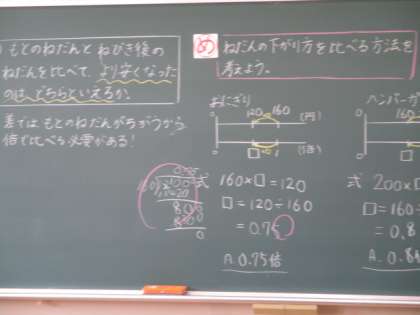 もとのねだんとねびき後の
ねだんを比べて、より安くなった
のは、どちらといえるか。
差ではもとのねだんがちがうから
倍で比べる必要がある！
め ねだんの下がり方を比べる方法を
考えよう。
おにぎり
120 160
0 (円)
0 □ 1 (倍)
式 160×□=120
□=120÷160
=0.75
A. 0.75倍
ハンバーガ
160
0
0
式 200×
□=160÷
=0.8
A. 0.8